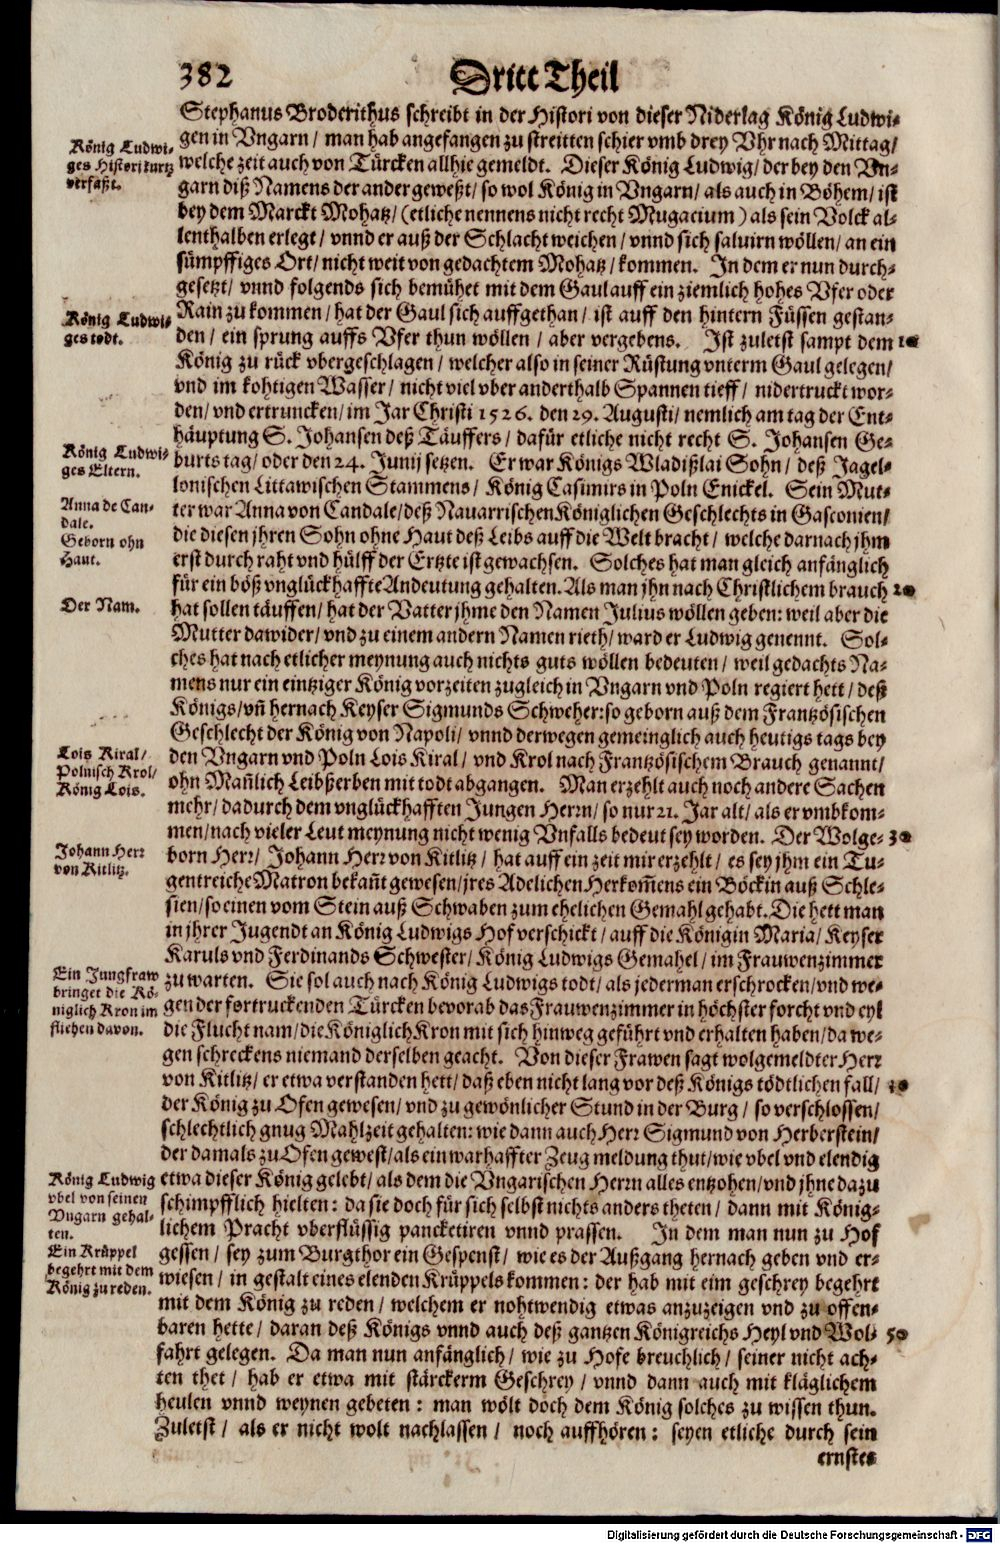 382
Dritt Theil
Stephanus Broderithus schreibt in der Histori von dieser Niderlag König Ludwi-
gen in Vngarn / man hab angefangen zu streitten schier vmb drey Vhr nach Mittag /
König Ludwi-
ges Histori kurtz
verfaßt.
welche zeit auch von Türcken allhie gemeldt. Dieser König Ludwig / der bey den Vn-
garn diß Namens der ander geweßt / so wol König in Vngarn / als auch in Böhem / ist
bey dem Marckt Mohatz / (etliche nennens nicht recht Mugacium) als sein Volck al-
lenthalben erlegt / vnnd er auß der Schlacht weichen / vnnd sich saluirn wöllen / an ein
sümpffiges Ort / nicht weit von gedachtem Mohatz / kommen. In dem er nun durch-
gesetzt / vnnd folgends sich bemühet mit dem Gaul auff ein ziemlich hohes Vfer oder
Rain zu kommen / hat der Gaul sich auffgethan / ist auff den hintern Füssen gestan-
König Ludwi-
ges todt.
den / ein sprung auffs Vfer thun wöllen / aber vergebens. Ist zuletst sampt dem
10
König zu rück vbergeschlagen / welcher also in seiner Rüstung vnterm Gaul gelegen /
vnd im kohtigen Wasser / nicht viel vber anderthalb Spannen tieff / nidertruckt wor-
den / vnd ertruncken / im Jar Christi 1526. den 29. Augusti / nemlich am tag der Ent-
häuptung S. Johansen deß Täuffers / dafür etliche nicht recht S. Johansen Ge-
König Ludwi-
ges Eltern.
burts tag / oder den 24. Junij setzen. Er war Königs Wladißlai Sohn / deß Jagel-
lonischen Littawischen Stammens / König Casimirs in Poln Enickel. Sein Mut-
Anna de Can-
dale.
ter war Anna von Candale / deß Nauarrischen Königlichen Geschlechts in Gasconien /
Geborn ohn
Haut.
die diesen jhren Sohn ohne Haut deß Leibs auff die Welt bracht / welche darnach jhm
erst durch raht vnd hülff der Ertzte ist gewachsen. Solches hat man gleich anfänglich
für ein böß vnglückhaffte Andeutung gehalten. Als man jhn nach Christlichem brauch
20
Der Nam.
hat sollen täuffen / hat der Vatter jhme den Namen Julius wöllen geben: weil aber die
Mutter dawider / vnd zu einem andern Namen rieth / ward er Ludwig genennt. Sol-
ches hat nach etlicher meynung auch nichts guts wöllen bedeuten / weil gedachts Na-
mens nur ein eintziger König vorzeiten zugleich in Vngarn vnd Poln regiert hett / deß
Königs / vn̄ hernach Keyser Sigmunds Schweher: so geborn auß dem Frantzösischen
Geschlecht der König von Napoli / vnnd derwegen gemeinglich auch heutigs tags bey
Lois Kiral /
Polnisch Krol /
König Lois.
den Vngarn vnd Poln Lois Kiral / vnd Krol nach Frantzösischem Brauch genannt /
ohn Man̄lich Leibßerben mit todt abgangen. Man erzehlt auch noch andere Sachen
mehr / dadurch dem vnglückhafften Jungen Herrn / so nur 21. Jar alt / als er vmbkom-
men / nach vieler Leut meynung nicht wenig Vnfalls bedeut sey worden. Der Wolge-
30
Johann Herr
von Kitlitz.
born Herr / Johann Herr von Kitlitz / hat auff ein zeit mir erzehlt / es sey jhm ein Tu-
gentreiche Matron bekan̄t gewesen / jres Adelichen Herkom̄ens ein Böckin auß Schle-
sien / so einen vom Stein auß Schwaben zum ehelichen Gemahl gehabt. Die hett man
in jhrer Jugendt an König Ludwigs Hof verschickt / auff die Königin Maria / Keyser
Karuls vnd Ferdinands Schwester / König Ludwigs Gemahel / im Frauwenzimmer
Ein Jungfraw
bringet die Kö-
niglich Kron im
fliehen davon.
zu warten. Sie sol auch nach König Ludwigs todt / als jederman erschrocken / vnd we-
gen der fortruckenden Türcken bevorab das Frauwenzimmer in höchster forcht vnd eyl
die Flucht nam / die Königlich Kron mit sich hinweg geführt vnd erhalten haben / da we-
gen schreckens niemand derselben geacht. Von dieser Frawen sagt wolgemeldter Herr
von Kitlitz / er etwa verstanden hett / daß eben nicht lang vor deß Königs tödtlichen fall /
40
der König zu Ofen gewesen / vnd zu gewönlicher Stund in der Burg / so verschlossen /
schlechtlich gnug Mahlzeit gehalten: wie dann auch Herr Sigmund von Herberstein /
der damals zu Ofen gewest / als ein warhaffter Zeug meldung thut / wie vbel vnd elendig
König Ludwig
vbel von seinen
Vngarn gehal-
ten.
etwa dieser König gelebt / als dem die Vngarischen Herrn alles entzohen / vnd jhne dazu
schimpfflich hielten: da sie doch für sich selbst nichts anders theten / dann mit König-
lichem Pracht vberflüssig pancketiren vnnd prassen. In dem man nun zu Hof
Ein Krüppel
begehrt mit dem
König zu reden.
gessen / sey zum Burgthor ein Gespenst / wie es der Außgang hernach geben vnd er-
wiesen / in gestalt eines elenden Krüppels kommen: der hab mit eim geschrey begehrt
mit dem König zu reden / welchem er nohtwendig etwas anzuzeigen vnd zu offen-
baren hette / daran deß Königs vnnd auch deß gantzen Königreichs Heyl vnd Wol-
50
fahrt gelegen. Da man nun anfänglich / wie zu Hofe breuchlich / seiner nicht ach-
ten thet / hab er etwa mit stärckerm Geschrey / vnnd dann auch mit kläglichem
heulen vnnd weynen gebeten: man wölt doch dem König solches zu wissen thun.
Zuletst / als er nicht wolt nachlassen / noch auffhören: seyen etliche durch sein
ernstes
Digitalisierung gefördert durch die Deutsche Forschungsgemeinschaft - DFG